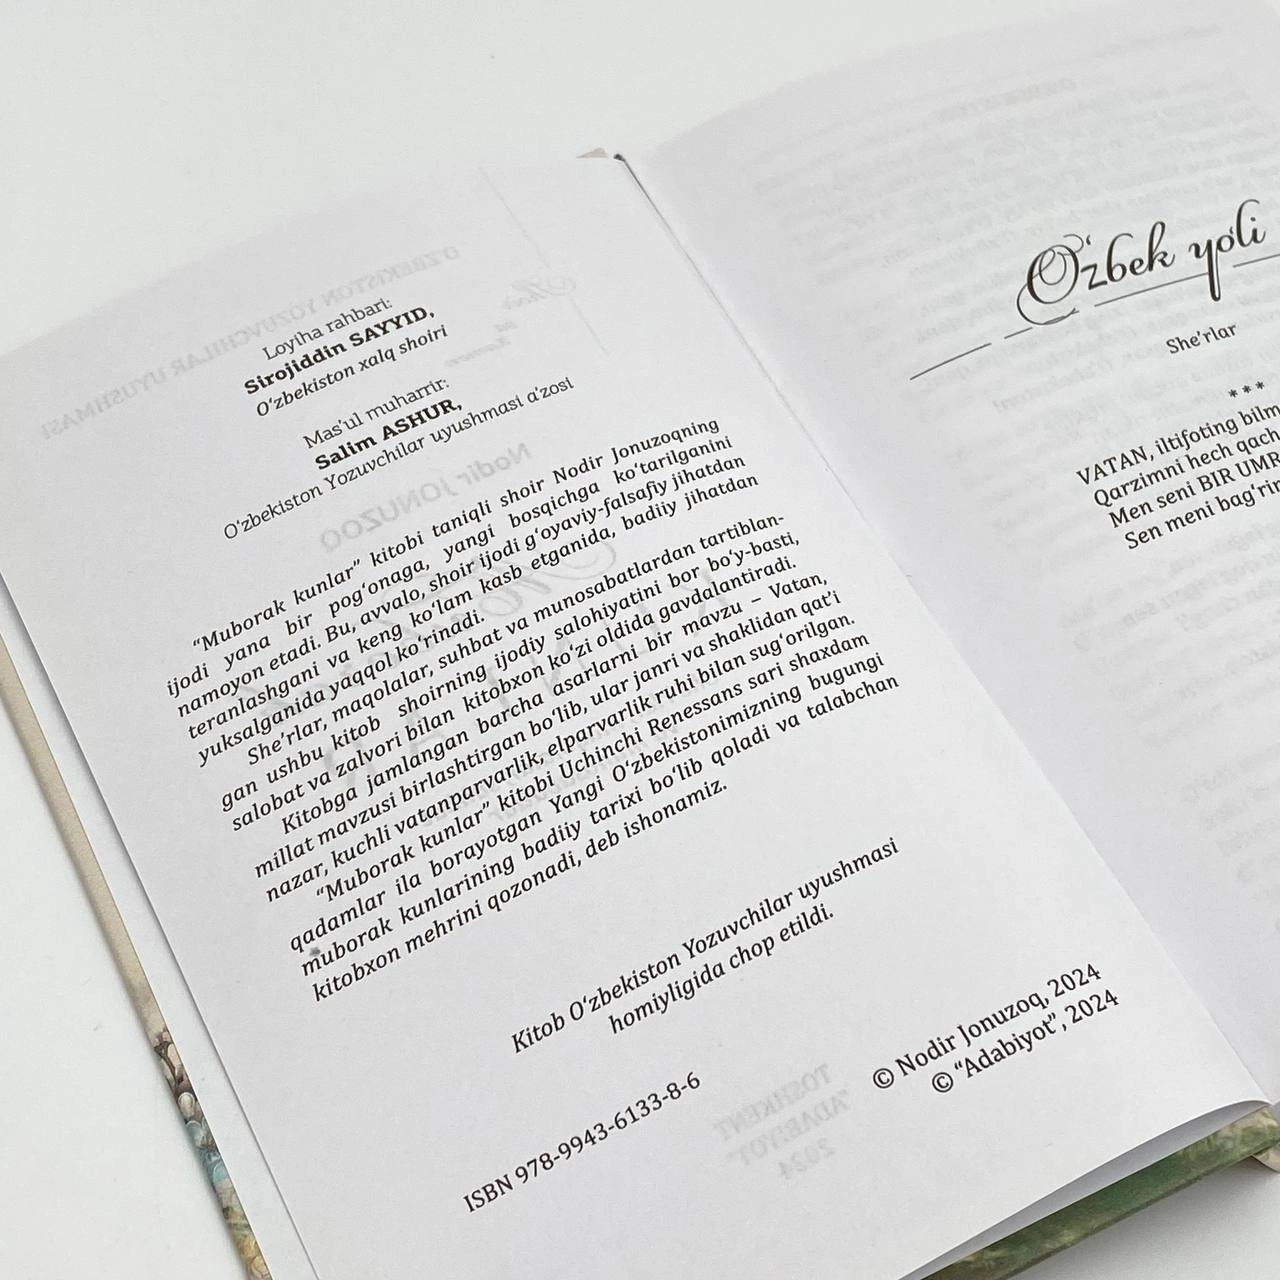 Loyiha rahbari:
Sirojiddin SAYYID,
O‘zbekiston xalq shoiri
Mas'ul muharrir:
Salim ASHUR,
O‘zbekiston Yozuvchilar uyushmasi a’zosi
“Muborak kunlar” kitobi taniqli shoir Nodir Jonuzoqning
ijodi yana bir pog‘onaga, yangi bosqichga ko‘tarilganini
namoyon etadi. Bu, avvalo, shoir ijodi g‘oyaviy-falsafiy jihatdan
teranlashgani va keng ko‘lam kasb etganida, badiiy jihatdan
yuksalganida yaqqol ko‘rinadi.
She’rlar, maqolalar, suhbat va munosabatlardan tartiblan-
gan ushbu kitob shoirning ijodiy salohiyatini bor bo‘y-basti,
salobat va zalvori bilan kitobxon ko‘zi oldida gavdalantiradi.
Kitobga jamlangan barcha asarlarni bir mavzu – Vatan,
millat mavzusi birlashtirgan bo‘lib, ular janri va shaklidan qat’i
nazar, kuchli vatanparvarlik, elparvarlik ruhi bilan sug‘orilgan.
“Muborak kunlar” kitobi Uchinchi Renessans sari shaxdam
qadamlar ila borayotgan Yangi O‘zbekistonimizning bugungi
muborak kunlarining badiiy tarixi bo‘lib qoladi va talabchan
kitobxon mehrini qozonadi, deb ishonamiz.
Kitob O‘zbekiston Yozuvchilar uyushmasi
homiyligida chop etildi.
© Nodir Jonuzoq, 2024
© “Adabiyot”, 2024
ISBN 978-9943-6133-8-6
O‘zbek yo‘li
She’rlar
* * *
VATAN, iltifoting
Qarzimni hech
Men seni BIR
Sen meni